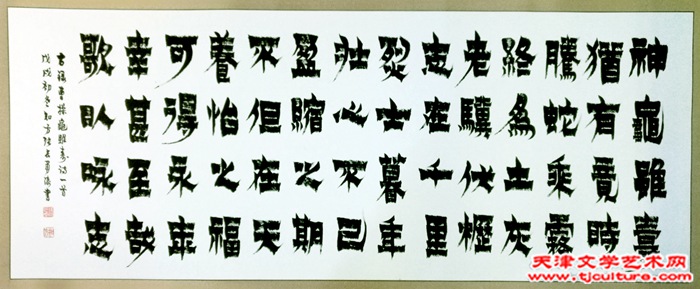 神龜雖壽
猶有竟時
騰蛇乘霧
終為土灰
老驥伏櫪
志在千里
烈士暮年
壯心不已
盈縮之期
不但在天
養怡之福
可得永年
幸甚至哉
歌以詠志
曹操龜雖壽詩一首
戊戌初冬
天津文学艺术网
www.tjculture.com